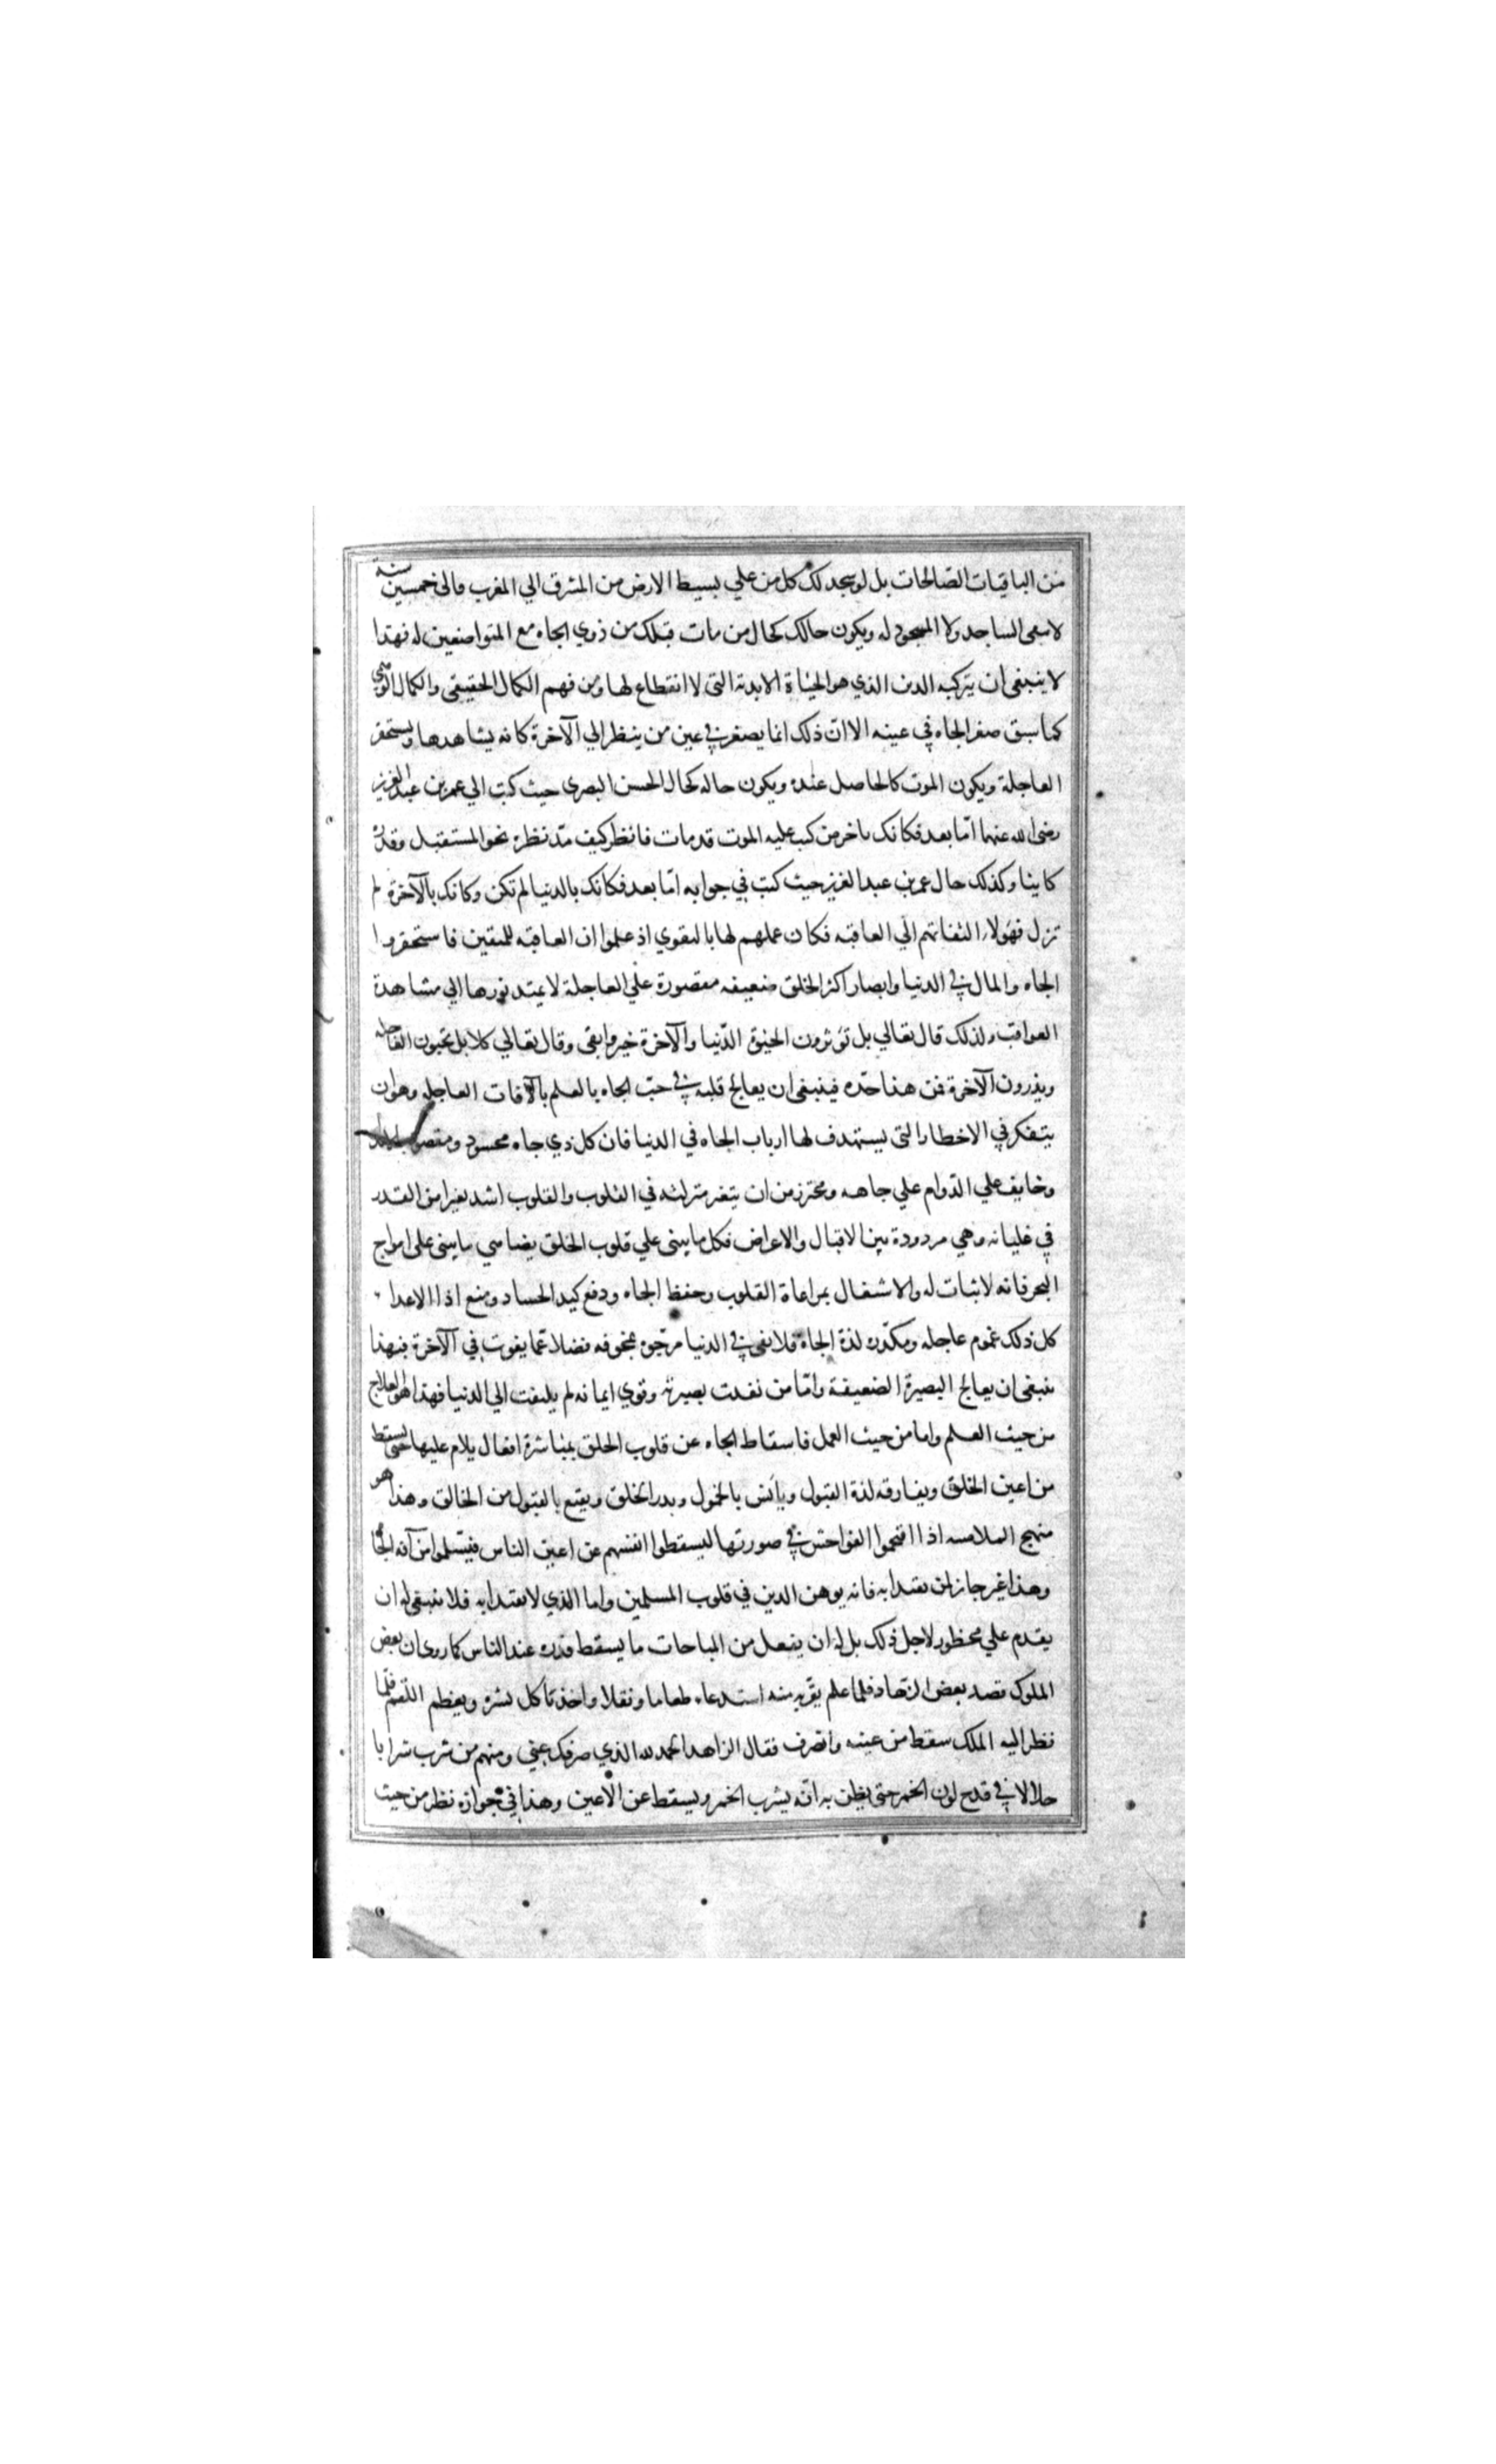 من الباقيات الصّالحات بل لو سجد لك كل من علي بسيط الارض من المشرق الي المغرب فالى خمسين سنة
لا يبقى الساجد ولا المسجود له ويكون حالك كحال من مات قبلك من ذوي الجاه مع المتواضعين له فهذا
لا ينبغي ان يترك به الدين الذي هو الحياة الابدية التى لا انقطاع لها ومن فهم الكمال الحقيقى والكمال الوهمي
كما سبق صغر الجاه في عينه الا ان ذلك انما يصغر في عين من ينظر الي الآخرة كانه يشاهدها ويستحقر
العاجلة ويكون الموت كالحاصل عنده ويكون حاله كحال الحسن البصرى حيث كتب الي عمر بن عبد العزيز
رضي الله عنهما امّا بعد فكانك باخر من كتب عليه الموت قد مات فانظر كيف مدّ نظره نحو المستقبل وقدره
كاينا وكذلك حال عمر بن عبد العزيز حيث كتب في جوابه امّا بعد فكانك بالدنيا لم تكن وكانك بالآخرة لم
تزل فهؤلاء التفاتهم الي العاقبه فكان عملهم لها بالتقوي اذ علموا ان العاقبه للمتقين فاستحقروا
الجاه والمال في الدنيا وابصار اكثر الخلق ضعيفه مقصورة علي العاجلة لا يمتد نورها الي مشاهدة
العواقب ولذلك قال تعالي بل تؤثرون الحيوة الدّنيا والآخرة خير وابقى وقال تعالي كلا بل تحبون العاجله
ويذرون الآخرة فمن هذا حدّه فينبغى ان يعالج قلبه في حبّ الجاه بالعلم بالآفات العاجله وهو ان
يتفكر في الاخطار التى يستهدف لها ارباب الجاه في الدنيا فان كل ذي جاه محسود ومقصود
وخايف علي الدّوام علي جاهه ومحترز من ان يتغير منزلته في القلوب والقلوب اشد تغيرا من القدر
في غليانه وهي مرددة بين الاقبال والاعراض فكل ما يبنى علي قلوب الخلق يضاهي ما يبنى على امواج
البحر فانه لا ثبات له والاشتغال بمراعاة القلوب وحفظ الجاه ودفع كيد الحساد ومنع اذا الاعدا
كل ذلك غموم عاجله ومكدّره لذة الجاه فلا يفى في الدنيا مرجوّه بمخوفه فضلا عمّا يفوت في الآخرة فبهذا
ينبغى ان يعالج البصيرة الضعيفة وامّا من نفدت بصيرته وقوي ايمانه لم يلتفت الي الدنيا فهذا هو العلاج
من حيث العلم واما من حيث العمل فاسقاط الجاه عن قلوب الخلق بمباشرة افعال يلام عليها حتى يسقط
من اعين الخلق ويفارقه لذة القبول ويانس بالخمول وبرد الخلق ويقنع بالقبول من الخالق وهذا هو
منهج الملامسه اذا اقتحموا الفواحش في صورتها ليسقطوا انفسهم عن اعين الناس فيسلموا من آفة الجاه
وهذا غير جاز لمن يقتدا به فانه يوهن الدين في قلوب المسلمين واما الذي لا يقتدا به فلا ينبغى له ان
يقدم علي محظور لاجل ذلك بل له ان يفعل من المباحات ما يسقط قدره عند الناس كما روى ان بعض
الملوك قصد بعض الزهاد فلما علم بقربه منه استدعا طعاما ونقلا واخذ يأكل بشره ويعظم اللّقم فلمّا
نظر اليه الملك سقط من عينه وانصرف فقال الزاهد الحمد لله الذي صرفك عني ومنهم من شرب شرابا
حلالا في قدح لون الخمر حتى يظن به انّه يشرب الخمر ويسقط عن الاعين وهذا في جوازه نظر من حيث